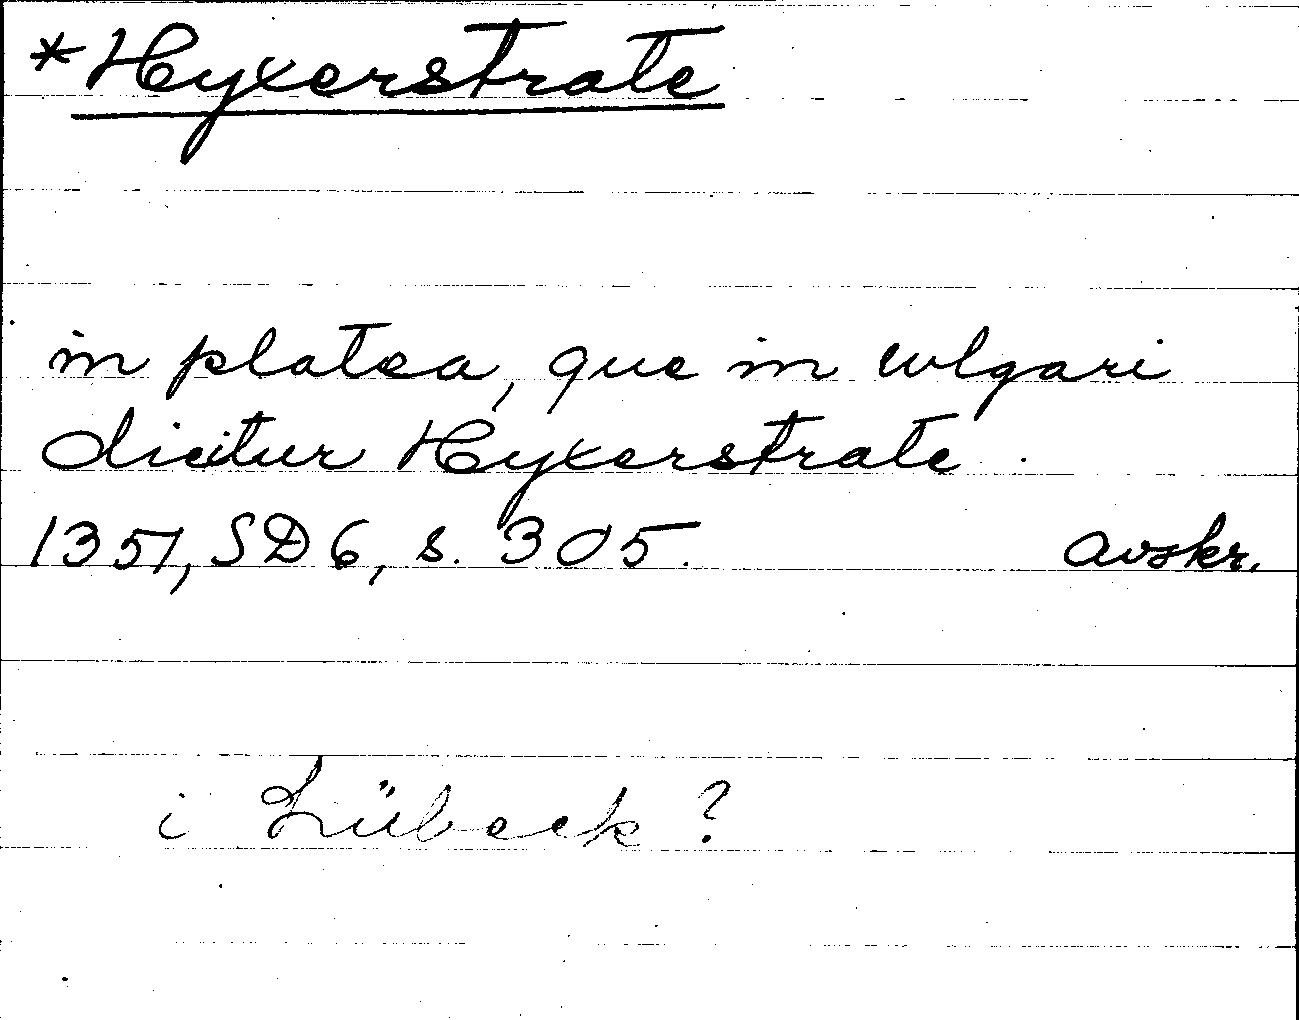 *Hyxerstrate
in platea, que in wlgari
dicitur Hyxerstrate.
1351, SD 6, s. 305. avskr.
i Lübeck?